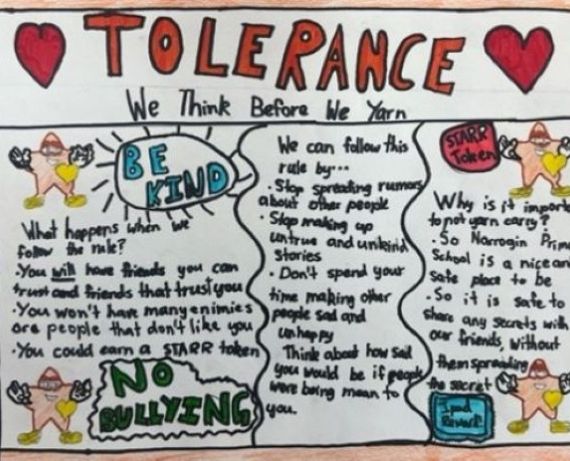 TOLERANCE
We Think Before We Yarn
BE
KIND
What happens when we
follow the rule?
·You will have friends you can
trust and friends that trust you
·You won't have many enimies
are people that don't like you
·You could earn a STARR token
NO
BULLYING
We can follow this
rule by...
·Stop spreading rumors
about other people
·Stop making up
untrue and unkind
stories
·Don't spend your
time making other
people sad and
unhappy
Think about how sad
you would be if people
were being mean to
you.
STARR
Token
Why is it
to not yarn carry?
·So Narrogin
School is a nice
safe place to be
·So it is safe to
share any secrets with
our friends, without
them spreading
the secret
Ipad
Reward!